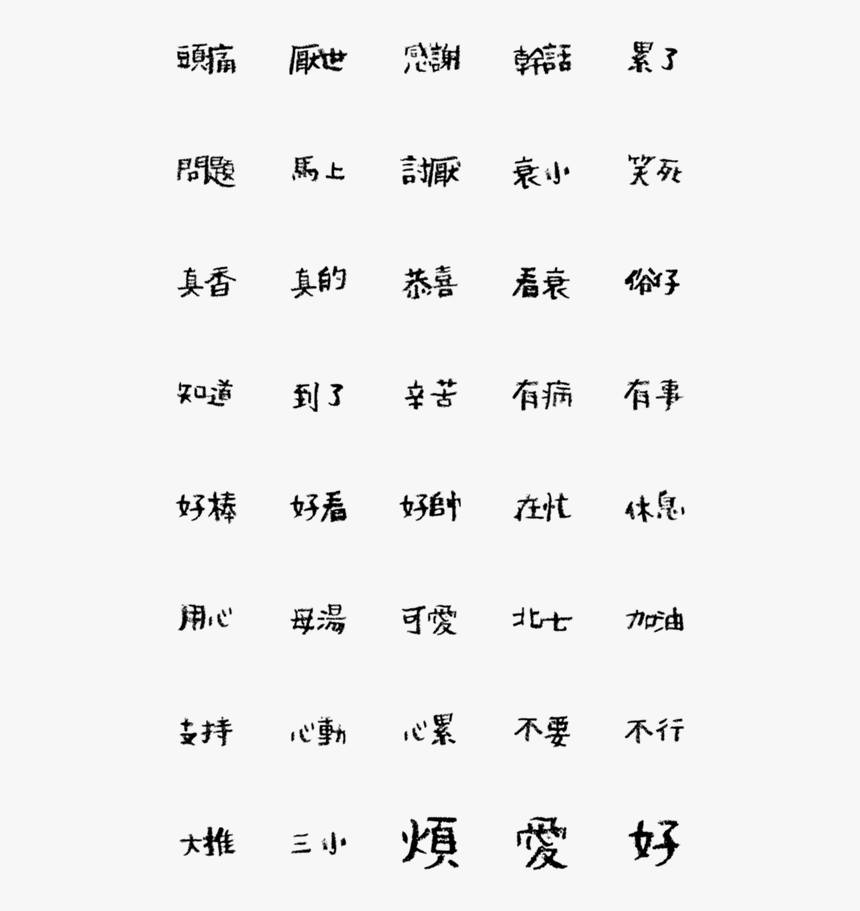 頭痛 厭世 感謝 幹話 累了
問題 馬上 討厭 衰小 笑死
真香 真的 恭喜 看衰 俗仔
知道 到了 辛苦 有病 有事
好棒 好看 好帥 在忙 休息
用心 母湯 可愛 北七 加油
支持 心動 心累 不要 不行
大推 三小 煩 愛 好